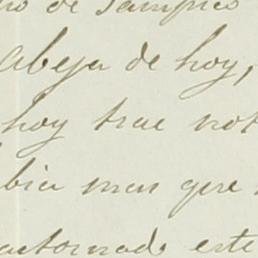 no de Tampico
Abeja de hoy,
hoy trae not
bia mas que
actornado este